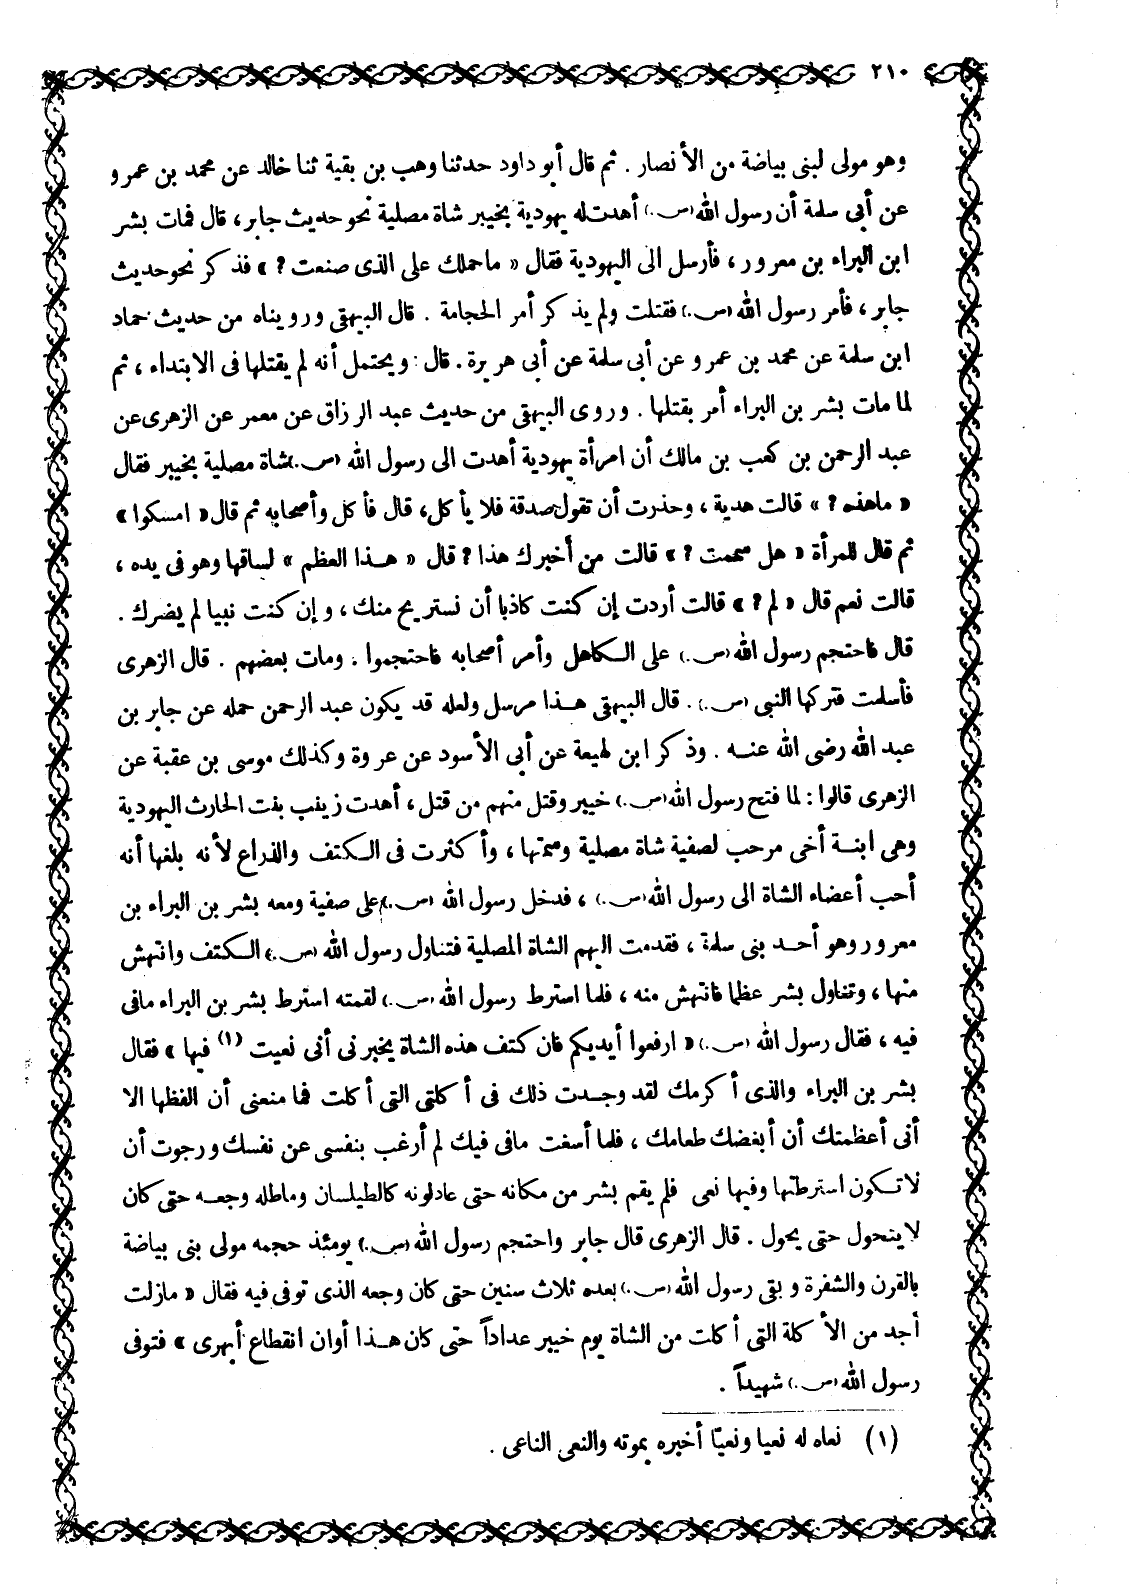 ٢١٠
وهو مولى لبنى بياضة من الأنصار . ثم قال أبو داود حدثنا وهب بن بقية ثنا خالد عن محمد بن عمرو
عن أبى سلمة أن رسول الله (ص.) أهدت له يهودية بخيبر شاة مصلية نحو حديث جابر ، قال فمات بشر
ابن البراء بن معرور ، فأرسل الى اليهودية فقال « ما حملك على الذى صنعت ? » فذكر نحو حديث
جابر ، فأمر رسول الله (ص.) فقتلت ولم يذكر أمر الحجامة . قال البيهقى ورويناه من حديث حماد
ابن سلمة عن محمد بن عمرو عن أبى سلمة عن أبى هريرة . قال : ويحتمل أنه لم يقتلها فى الابتداء ، ثم
لما مات بشر بن البراء أمر بقتلها . وروى البيهقى من حديث عبد الرزاق عن معمر عن الزهرى عن
عبد الرحمن بن كعب بن مالك أن امرأة يهودية أهدت الى رسول الله (ص.) شاة مصلية بخيبر فقال
« ما هذه ? » قالت هدية ، وحذرت أن تقول صدقة فلا يأكل ، قال فأكل وأصحابه ثم قال « امسكوا »
ثم قال للمرأة « هل سممت ? » قالت من أخبرك هذا ? قال « هذا العظم » لساقها وهو فى يده ،
قالت نعم قال « لم ? » قالت أردت إن كنت كاذبا أن نستريح منك ، وإن كنت نبيا لم يضرك .
قال فاحتجم رسول الله (ص.) على الكاهل وأمر أصحابه فاحتجموا . ومات بعضهم . قال الزهرى
فأسلمت فتركها النبى (ص.) . قال البيهقى هذا مرسل ولعله قد يكون عبد الرحمن حمله عن جابر بن
عبد الله رضى الله عنه . وذكر ابن لهيعة عن أبى الأسود عن عروة وكذلك موسى بن عقبة عن
الزهرى قالوا : لما فتح رسول الله (ص.) خيبر وقتل منهم من قتل ، أهدت زينب بنت الحارث اليهودية
وهى ابنة أخى مرحب لصفية شاة مصلية وسمتها ، وأكثرت فى الكتف والذراع لأنه بلغها أنه
أحب أعضاء الشاة الى رسول الله (ص.) ، فدخل رسول الله (ص.) على صفية ومعه بشر بن البراء بن
معرور وهو أحد بنى سلمة ، فقدمت اليهم الشاة المصلية فتناول رسول الله (ص.) الكتف وانتهش
منها ، وتناول بشر عظما فانتهش منه ، فلما استرط رسول الله (ص.) لقمته استرط بشر بن البراء مافى
فيه ، فقال رسول الله (ص.) « ارفعوا أيديكم فان كتف هذه الشاة يخبرنى أنى نعيت (١) فيها » فقال
بشر بن البراء والذى أكرمك لقد وجدت ذلك فى أكلتى التى أكلت فما منعنى أن الفظها الا
أنى أعظمتك أن أبغضك طعامك ، فلما أسغت مافى فيك لم أرغب بنفسى عن نفسك ورجوت أن
لا تكون استرطتها وفيها نعى فلم يقم بشر من مكانه حتى عاد لونه كالطيلسان وماطله وجعه حتى كان
لا يتحول حتى يحول . قال الزهرى قال جابر واحتجم رسول الله (ص.) يومئذ حجمه مولى بنى بياضة
بالقرن والشفرة وبقى رسول الله (ص.) بعده ثلاث سنين حتى كان وجعه الذى توفى فيه فقال « مازلت
أجد من الأكلة التى أكلت من الشاة يوم خيبر عداداً حتى كان هذا أوان انقطاع أبهرى » فتوفى
رسول الله (ص.) شهيداً .
(١) نعاه له نعيا ونعيّا أخبره بموته والنعى الناعى .